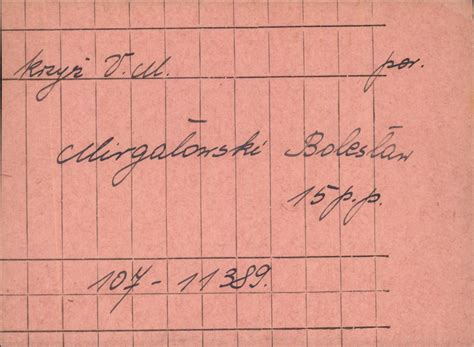 krzyż V. M. por.
Mirgałowski Bolesław
15 p.p.
107 - 11389.